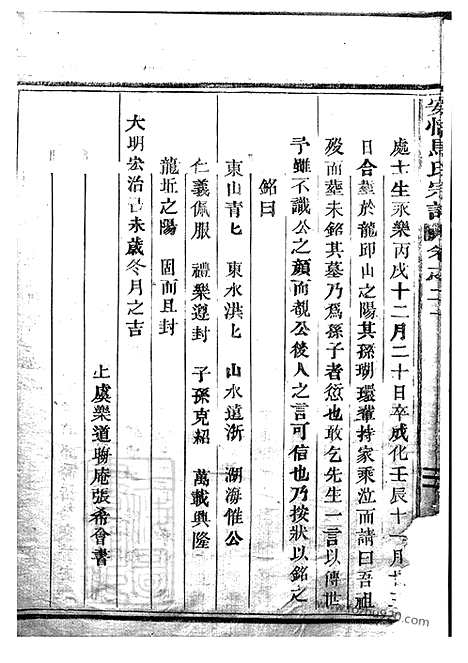 處士生永樂丙戌十二月二十日卒成化壬辰十一月十
日合葬於龍印山之陽其孫瑚環輩持家乘泣而請曰吾祖
歿而葬未銘其墓乃爲孫子者愆也敢乞先生一言以傳世
予雖不識公之顏而覩公後人之言可信也乃按狀以銘之
銘曰
東山青匕 東水洪匕 山水遠浙 湖海惟公
仁義佩服 禮樂遵封 子孫克紹 萬載興隆
龍坵之陽 固而且封
大明宏治己未歲冬月之吉
上虞樂道聨庵張希會書
馬氏宗譜